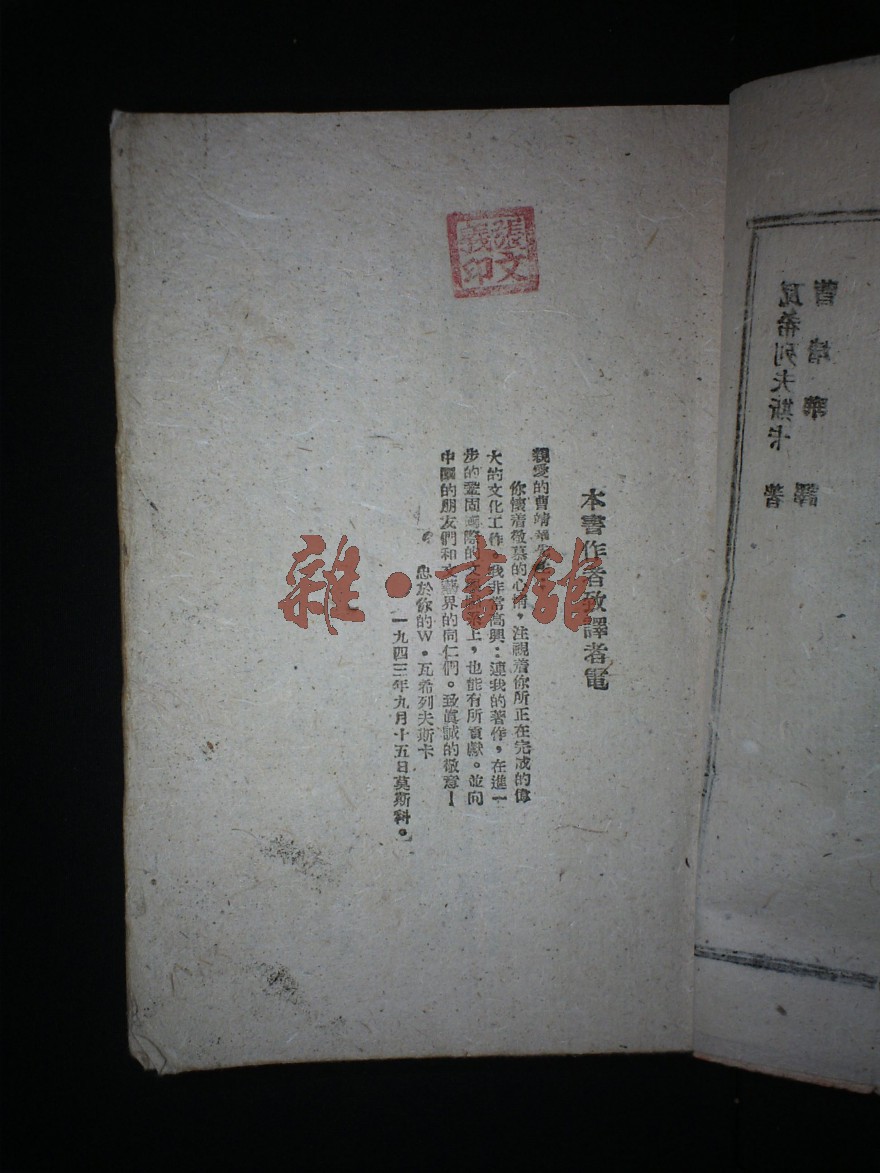 張文義印
本書作者致譯者電
親愛的曹靖華
你懷着敬慕的心情,注視着你所正在完成的偉
大的文化工作。我非常高興:連我的著作,在進一
步的鞏固國際的文上,也能有所貢獻。並向
中國的朋友們和文藝界的同仁們。致眞誠的敬意!
忠於你的W.瓦希列夫斯卡
一九四三年九月十五日莫斯科。
曹靖華譯
瓦希列夫斯卡著
雜·書館